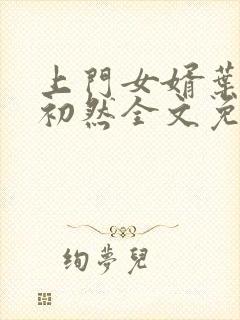 上門女婿葉
初然全文免
絢夢兒